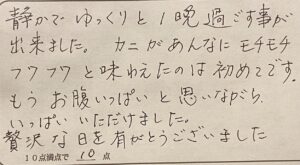 静かでゆっくりと1晩過ごす事が
出来ました。カニがあんなにモチモチ
フワフワと味わえたのは初めてです。
もうお腹いっぱいと思いながら、
いっぱいいただけました。
贅沢な日を有がとうございました
10点満点で 10 点